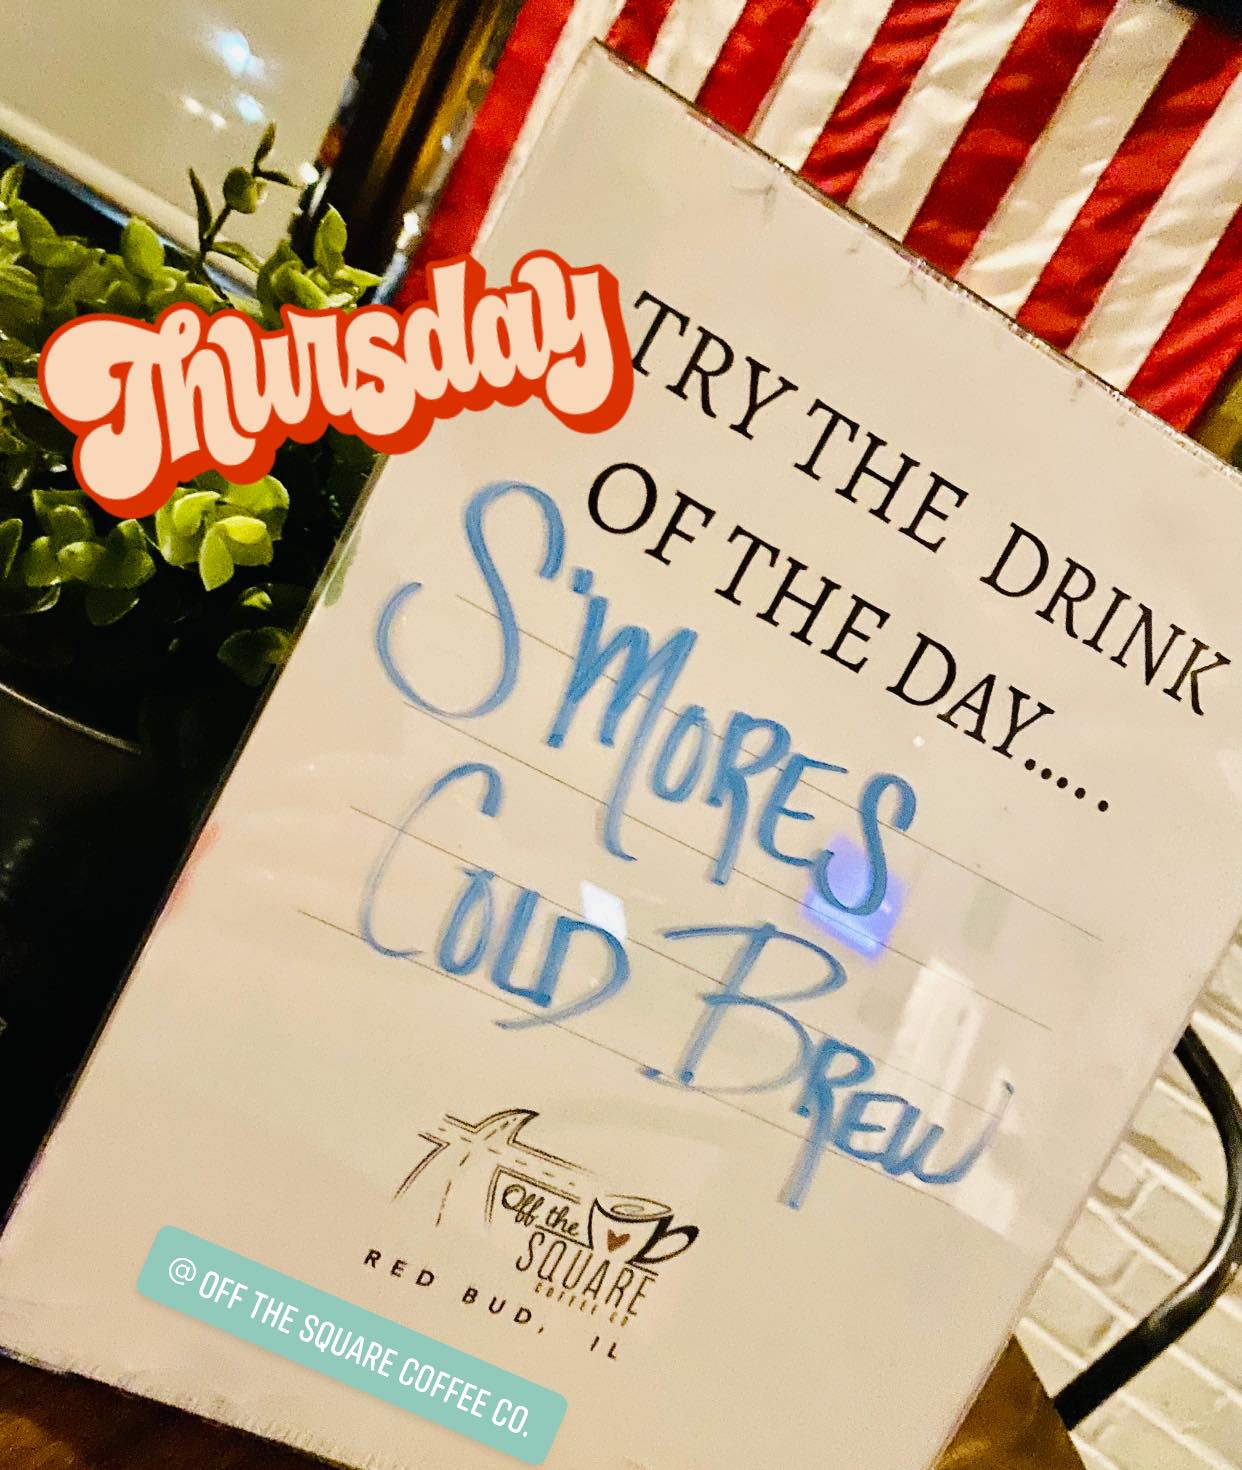 Thursday
TRY THE DRINK
OF THE DAY.....
S'MORES
COLD BREW
Off the
SQUARE
COFFEE CO
RED BUD, IL
@ OFF THE SQUARE COFFEE CO.